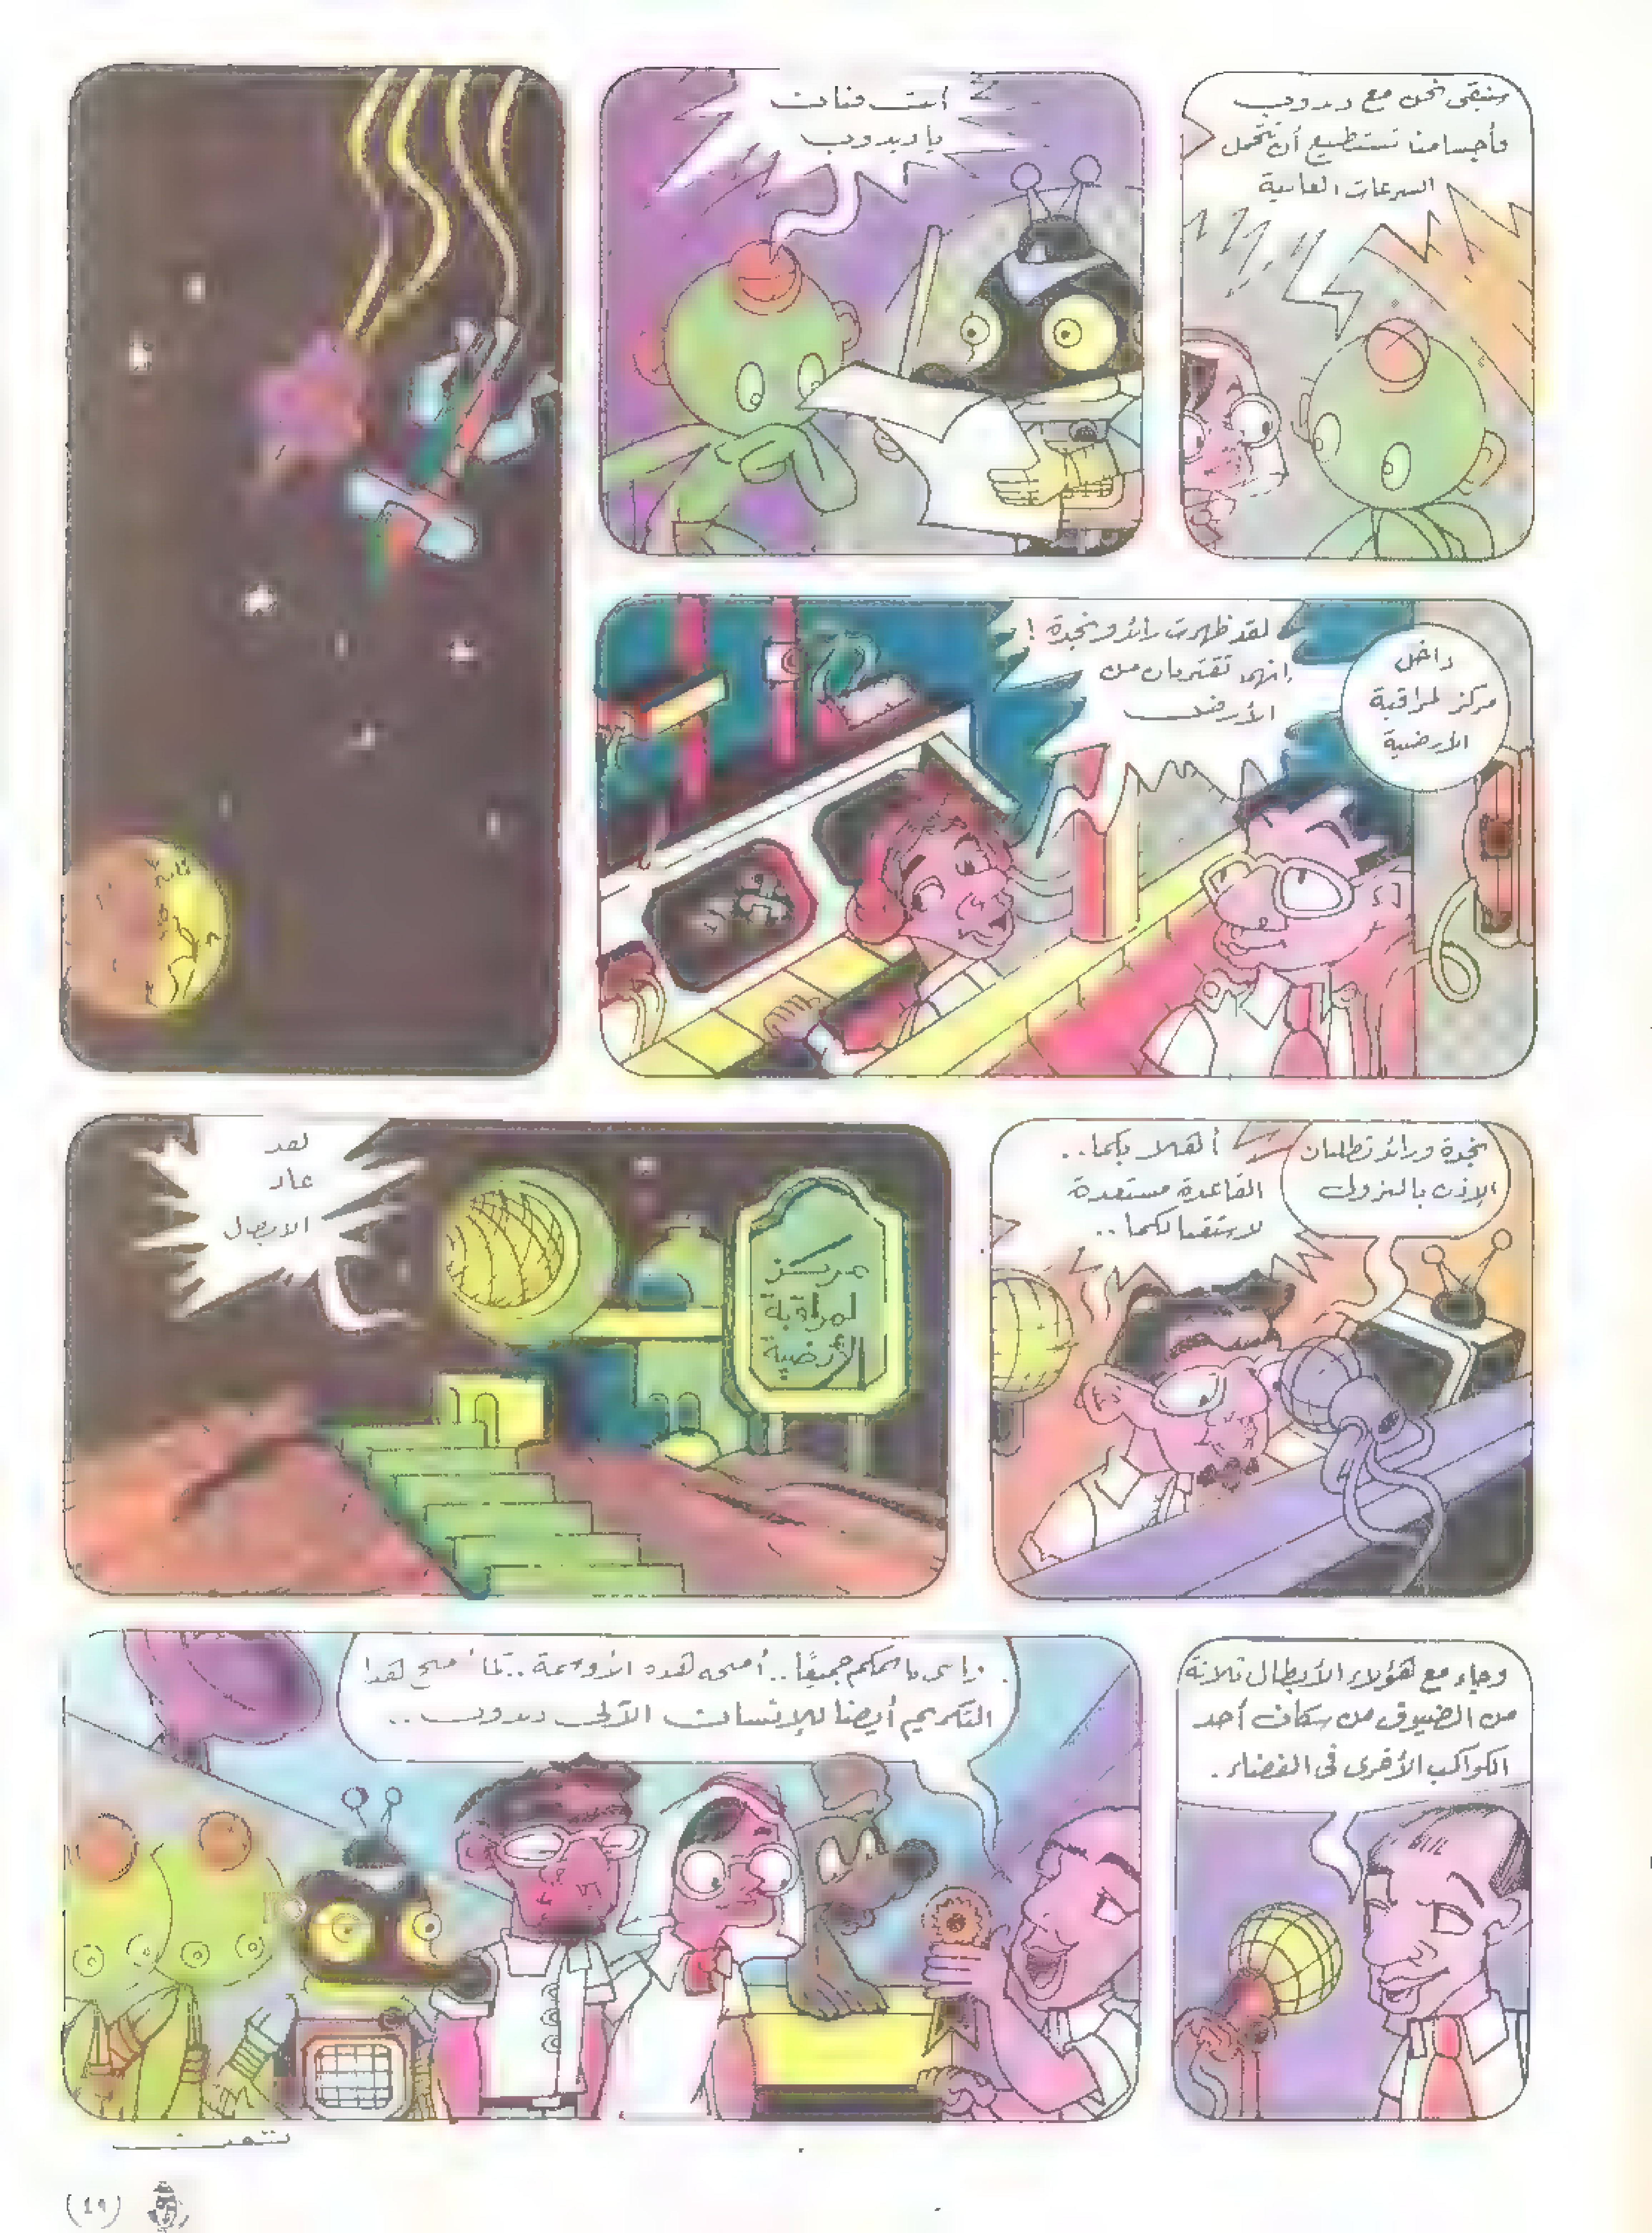 سنبقى نحن مع دبدوب
فأجسامنا تستطيع أن تتحمل
السرعات العالية
أنت فنان
يا دبدوب
داخل
مركز المراقبة
الأرضية
لقد ظهرت رائد ونجدة !
إنهما تقتربان من
الأرض
نجدة ورائد تطلبان
الإذن بالنزول
أهلا بكما..
القاعدة مستعدة
لاستقبالكما..
لقد
عاد
الابطال
مركز
المراقبة
الأرضية
وجاء مع هؤلاء الأبطال ثلاثة
من الضيوف من سكان أحد
الكواكب الأخرى في الفضاء .
جميعًا.. أمنحه هذه الأوسمة.. هذا
التكريم أيضا للإنسان الآلى دبدوب..
تمت
(١٩)